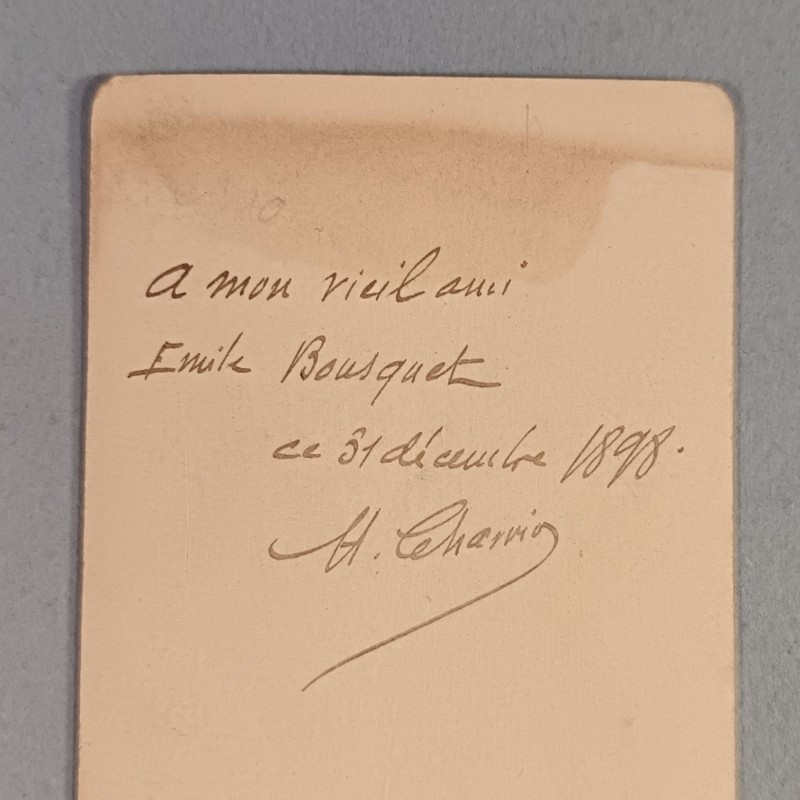 A mon vieil ami
Emile Bousquet
ce 31 décembre 1898.
H. Charvin